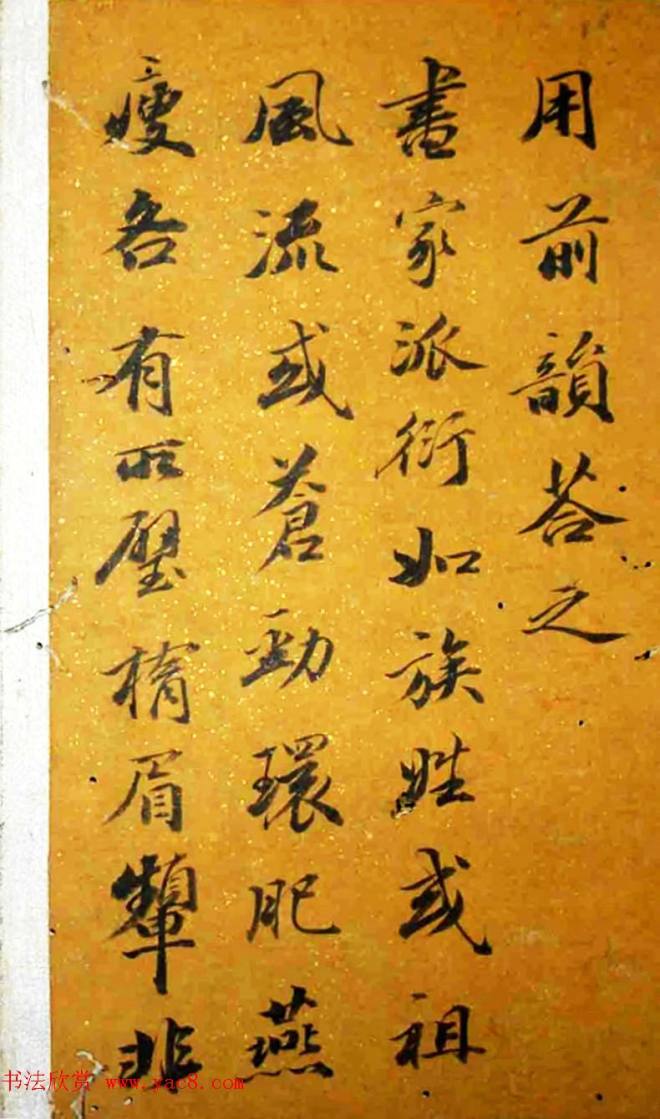 用前韻荅之
畫家派衍如族姓或祖
風流或蒼勁環肥燕
瘦各有所楕眉顰非
书法欣赏 www.yac8.com